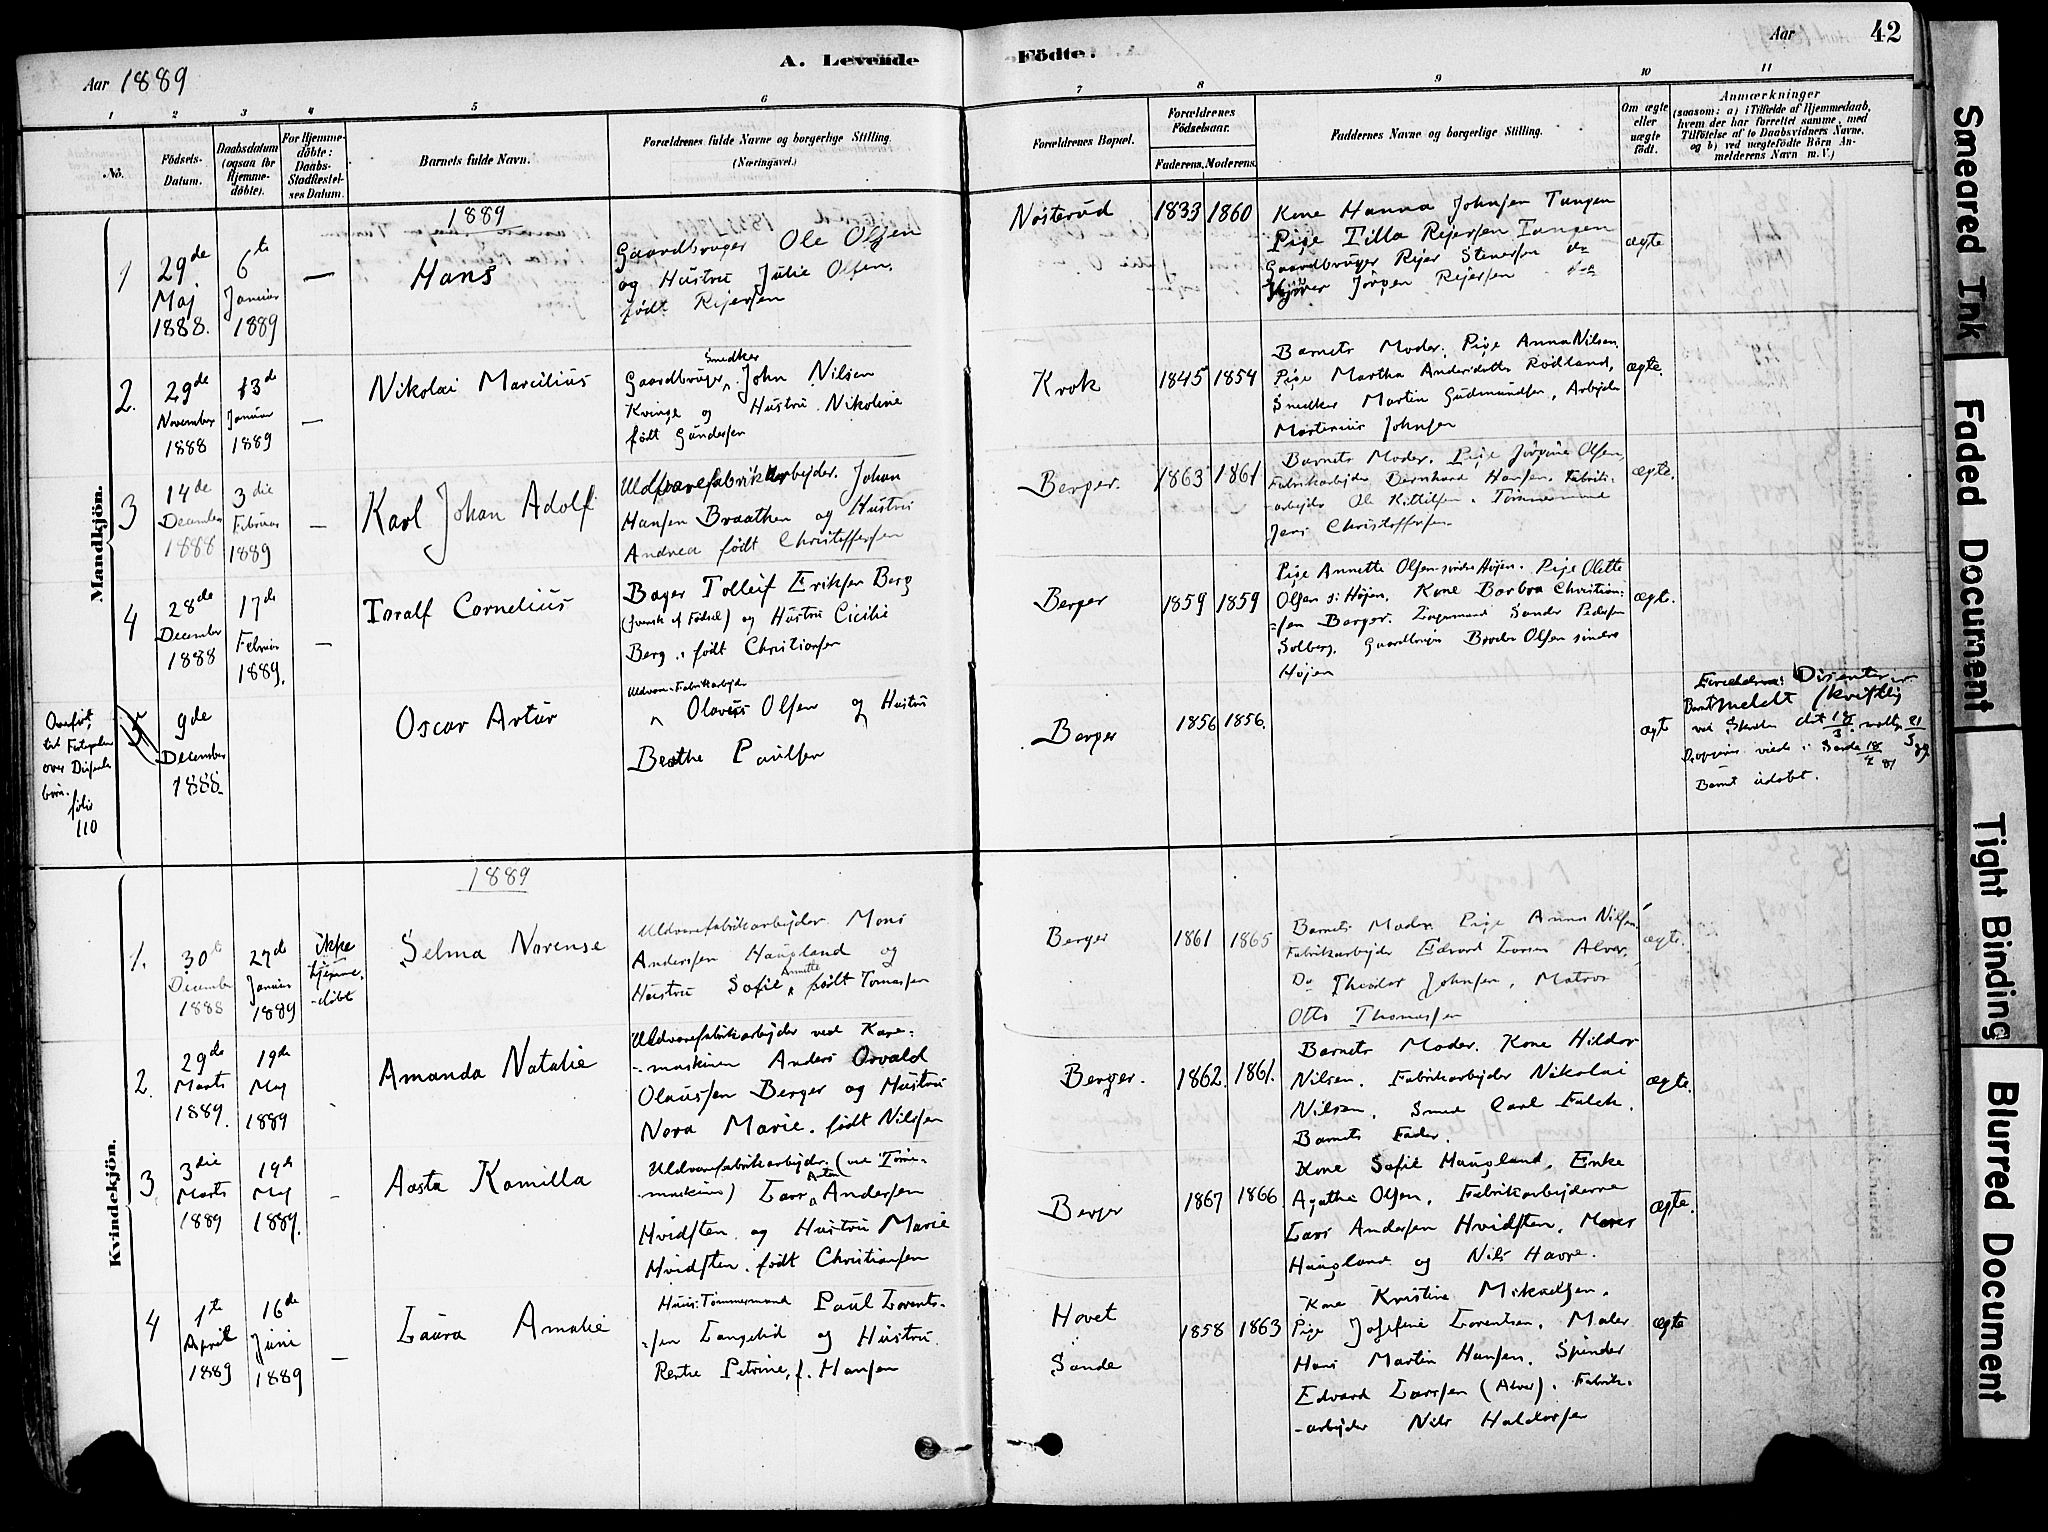 42
Aar 1889
A. Levende
Födte.
Aar
1
2
3
4
5
6
7
8
9
10
11
No.
Födsels-
Datum.
Daabsdatum
(ogsaa for
Hjemme-
döbte).
For Hjemme-
döbte:
Daabs-
Stadfæstel-
ses Datum.
Barnets fulde Navn.
Forældrenes fulde Navne og borgerlige Stilling.
(Næringsvei.)
Forældrenes Bopæl.
Forældrenes
Födselsaar.
Faderens.
Moderens.
Faddernes Navne og borgerlige Stilling.
Om ægte
eller
uægte
født.
Anmærkninger
(saasom: a) i Tilfælde af Hjemmedaab,
hvem der har forrettet samme, med
Tilföielse af to Daabsvidners Navne,
og b) ved uægtefödte Börn An-
melderens Navn m. V.)
Mandkjön.
1889
1
29de
Maj
1888.
6te
Januar
1889
—
Hans
Gaardbruger Ole Olsen
og Hustru Julie Olsen,
født Rejersen
Nøsterud
1833
1860
Kone Hanna Johnsen Tangen
Pige Tilla Rejersen Tangen
Gaardbruger Rejer Stenersen do
Jørgen Rejersen
ægte
2.
29de
November
1888
13de
Januar
1889
—
Nikolai Marcilius
Snedker
Gaardbruger John Nilsen
Kvinge og Hustru Nikoline
født Gundersen
Krok
1845
1854
Barnets Moder. Pige Anna Nilsen
Pige Martha Andersdatter Rødland,
Snedker Martin Gudmundsen, Arbejder
Martinius Johnsen
ægte.
3
14de
December
1888
3die
Februar
1889
—
Karl Johan Adolf
Uldvarefabrikarbejder. Johan
Hansen Braathen og Hustru
Andrea født Christoffersen
Berger.
1863
1861
Barnets Moder. Pige Jørgine Olsen,
Fabrikarbejder Bernhard Hansen. Fabrik-
-arbejder Ole Kittilsen. Tømmermand
Jens Christoffersen
ægte.
4
28de
December
1888
17de
Februar
1889.
—
Toralf Cornelius
Bager Tolleif Eriksen Berg
(svensk af Fødsel) og Hustru Cicilie
Berg født Christiansen
Berger
1859
1859
Pige Annette Olsen søndre Højen. Pige Olette
Olsen s: Højen. Kone Barbra Christian-
=sen Berger. Sander Pedersen
Solberg. Gaardbruger Olsen søndre
Højen
ægt.
Overført
til
over
børn.
folio
110
5
9de
December
1888.
Oscar Artur
Uldvare-Fabrikarbejder
Olaves Olsen og Hustru
Berthe Paulsen
Berger
1856
1856.
ægt
Forældrene Dissenter
Barnet meldt skriftlig
Barnet udøbt.
Kvindekjön.
1889
1.
30te
December
1888
27de
Januar
1889
ikke
hjemme-
-døbt
Selma Norense
Uldvarefabrikarbejder Mons
Anderssen Haugland og
Annette
Hustru Sofie født Tomassen
Berger
1861
1865
Barnets Moder Pige Anna Nilsen,
Fabrikarbejder Edvard Larsen Alver,
Do Theodor Johnsen, Matros
Otto Thomassen
ægte.
2.
29de
Marts
1889.
19de
Maj
1889
Amanda Natalie
Uldvarefabrikarbejder ved Kare-
-maskinen Anders Osvald
Olaussen Berger og Hustru
Nora Marie. født Nilssen
Berger.
1862.
1861.
Barnets Moder. Kone Hildur
Nilsen. Fabrikarbejder Nikolai
Nilsen. Smed Carl Falck.
Barnets Fader.
ægte.
3.
3die
Marts
1889
19de
Maj
1889.
—
Aasta Kamilla
Uldvarefabrikarbejder.
-maskine) Lars Andersen
Hvidsten og Hustru Marie
Hvidsten. født Christiansen
Berger
1867
1866
Kone Sofie Haugland. Enke
Agathe Olsen. Fabrikarbejderne
Lars Andersen Hvidsten, Mons
Haugland og Nils Havre.
ægte.
4
1te
April
1889
16de
Juni
1889
—
Laura Amalie
Huus-Tømmermand Paul Lorents-
=sen Langelid og Hustru
Petrine, f. Hansen
Hovet
Sande
1858
1863
Kone Kristine Mikaelsen.
Pige Josefine Lorentsen. Maler
Hans Martin Hansen. Spinder
Edvard Larssen (Alver). Fabrik-
-arbejder Nils Haldorsen
ægte
Smeared Ink
Faded Document
Tight Binding
Blurred Document